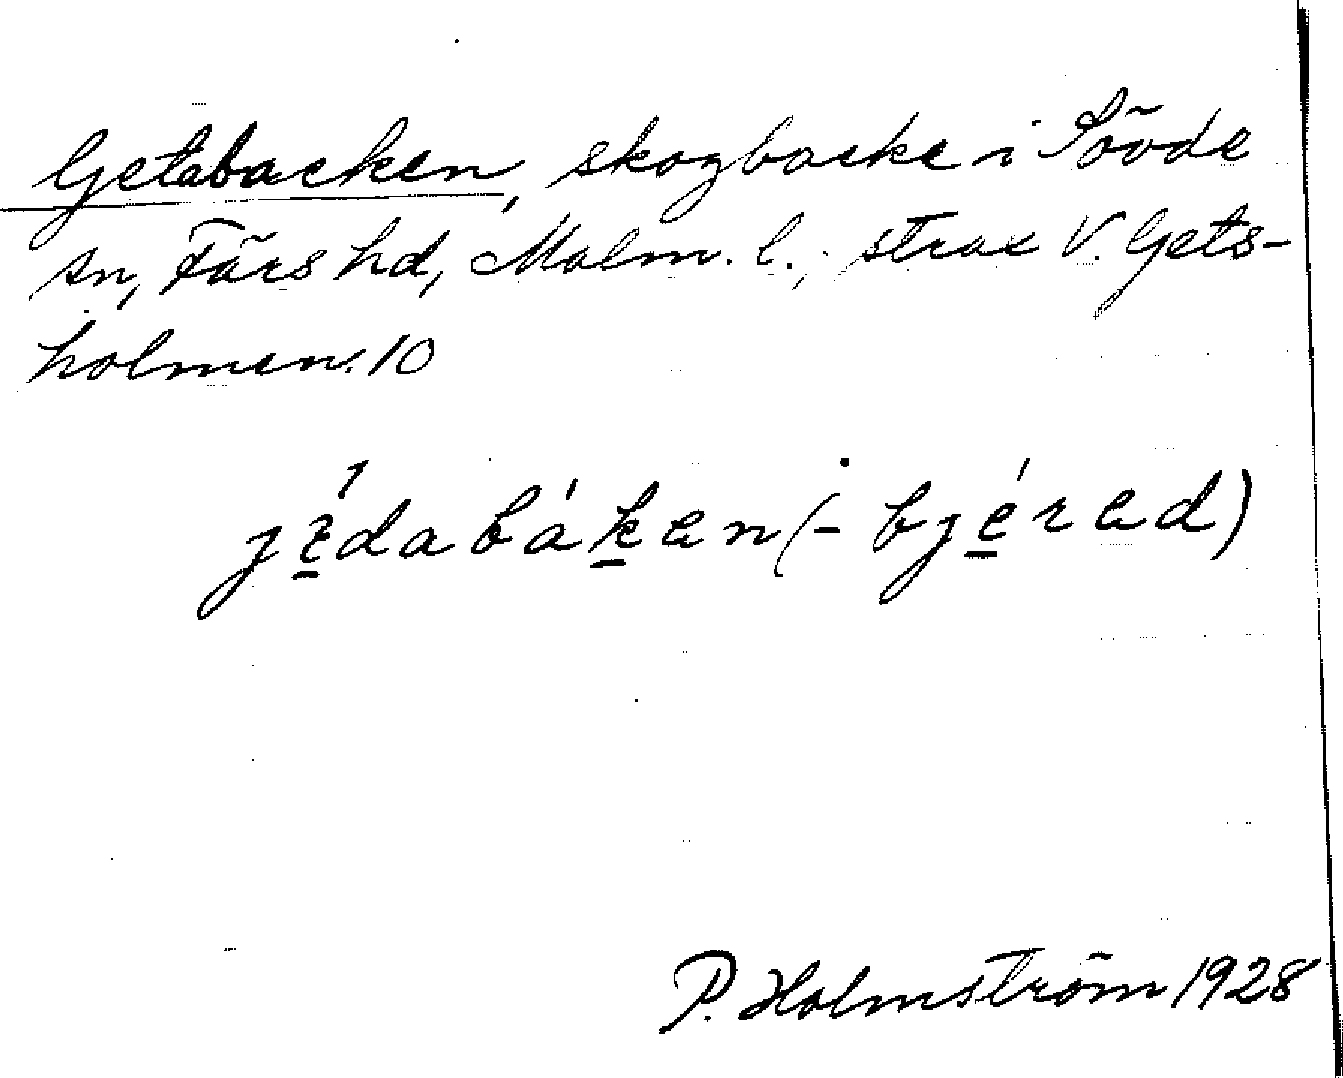 Getabacken, skogbacke i Sövde
sn, Färs hd, Malm. l., strax V. Gets-
holmen. 10
jédabáken (- bjéred)
P. Holmström 1928